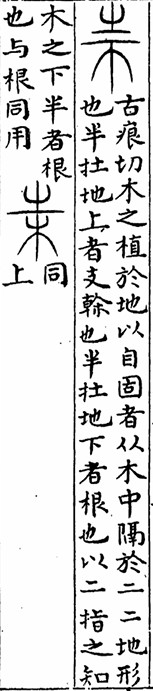 古痕切木之植於地以自固者从木中隔於二二地形
也半在地上者支榦也半在地下者根也以二指之知
木之下半者根
也与根同用
同
上